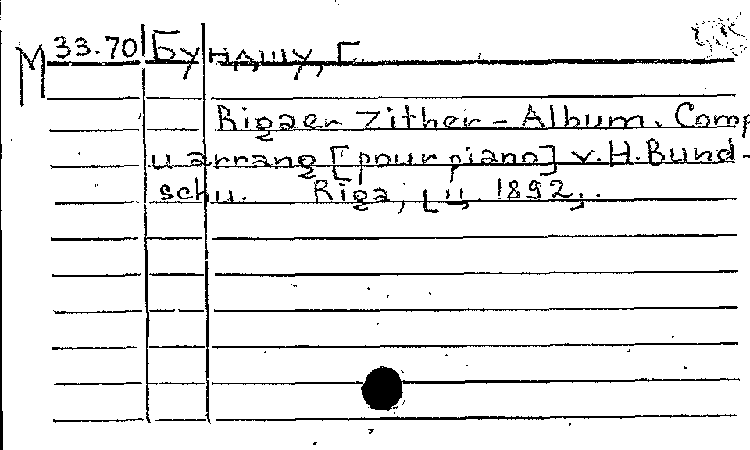 М 33.70 Бундшу, Г.
Rigaer Zither-Album. Comp
u arrang [pour piano] v. H. Bund-
schu. Riga, [ц. 1892].